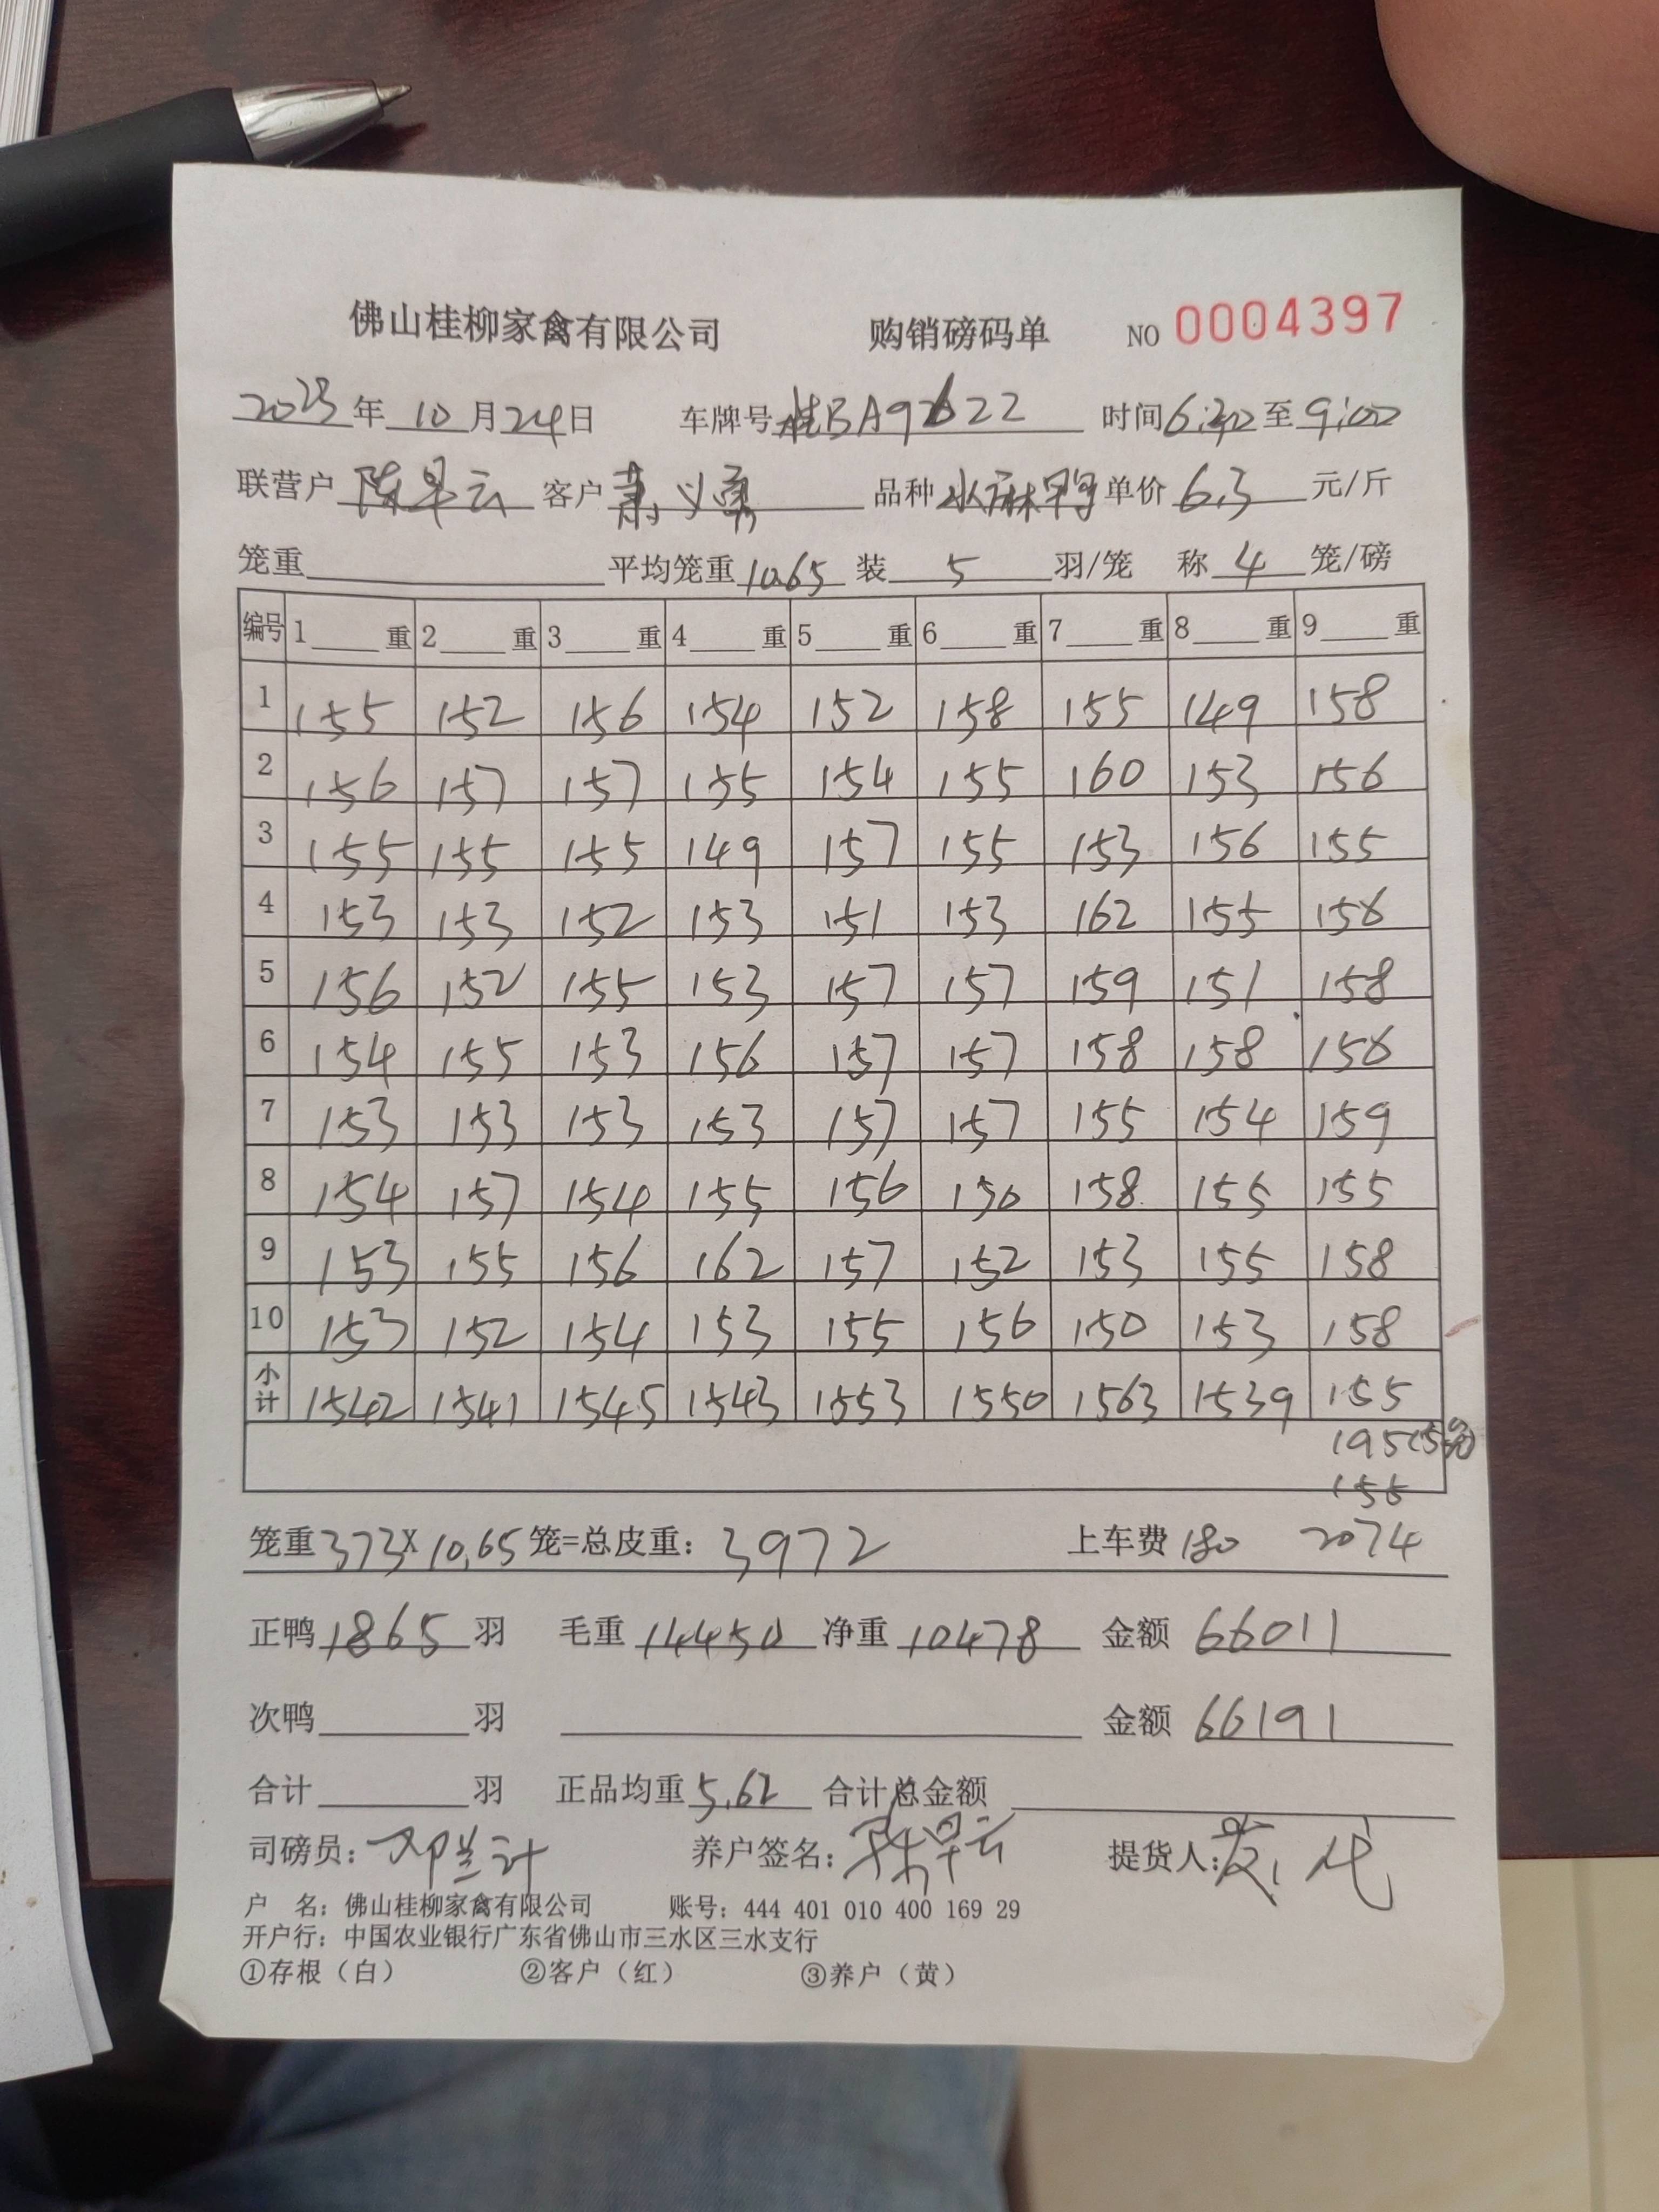 佛山桂柳家禽有限公司 购销磅码单 NO 0004397
2023年10月24日 车牌号桂BA9622 时间6:30至9:00
联营户 陈早云 客户 萧义勇 品种 水麻鸭 单价 6.3 元/斤
笼重 平均笼重 10.65 装 5 羽/笼 称 4 笼/磅
编号 1 重 2 重 3 重 4 重 5 重 6 重 7 重 8 重 9 重
1 155 152 156 154 152 158 155 149 158
2 156 157 157 155 154 155 160 153 156
3 155 155 155 149 157 155 153 156 155
4 153 153 152 153 151 153 162 155 156
5 156 152 155 153 157 157 159 151 158
6 154 155 153 156 157 157 158 158 156
7 153 153 153 153 157 157 155 154 159
8 154 157 154 155 156 150 158 155 155
9 153 155 156 162 157 152 153 155 158
10 153 152 154 153 155 156 150 153 158
小计 1542 1541 1545 1543 1553 1550 1563 1539 155
195(5笼)
155
笼重 373×10.65 笼=总皮重: 3972 上车费 180 2074
正鸭 1865 羽 毛重 14450 净重 10478 金额 66011
次鸭 羽 金额 66191
合计 羽 正品均重 5.62 合计总金额
司磅员: 邓兰计 养户签名: 陈早云 提货人: 代
户 名: 佛山桂柳家禽有限公司 账号: 444 401 010 400 169 29
开户行: 中国农业银行广东省佛山市三水区三水支行
①存根（白） ②客户（红） ③养户（黄）